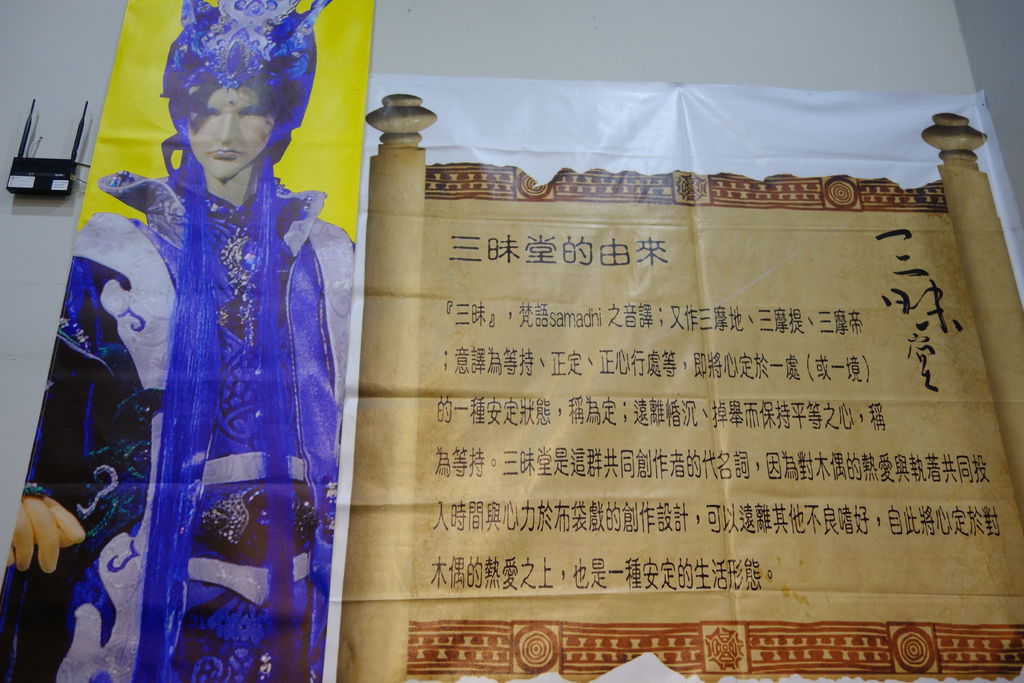 三昧堂的由來
三昧堂
『三昧』，梵語samadhi 之音譯；又作三摩地、三摩提、三摩帝
；意譯為等持、正定、正心行處等，即將心定於一處（或一境）
的一種安定狀態，稱為定；遠離惛沉、掉舉而保持平等之心，稱
為等持。三昧堂是這群共同創作者的代名詞，因為對木偶的熱愛與執著共同投
入時間與心力於布袋戲的創作設計，可以遠離其他不良嗜好，自此將心定於對
木偶的熱愛之上，也是一種安定的生活形態。